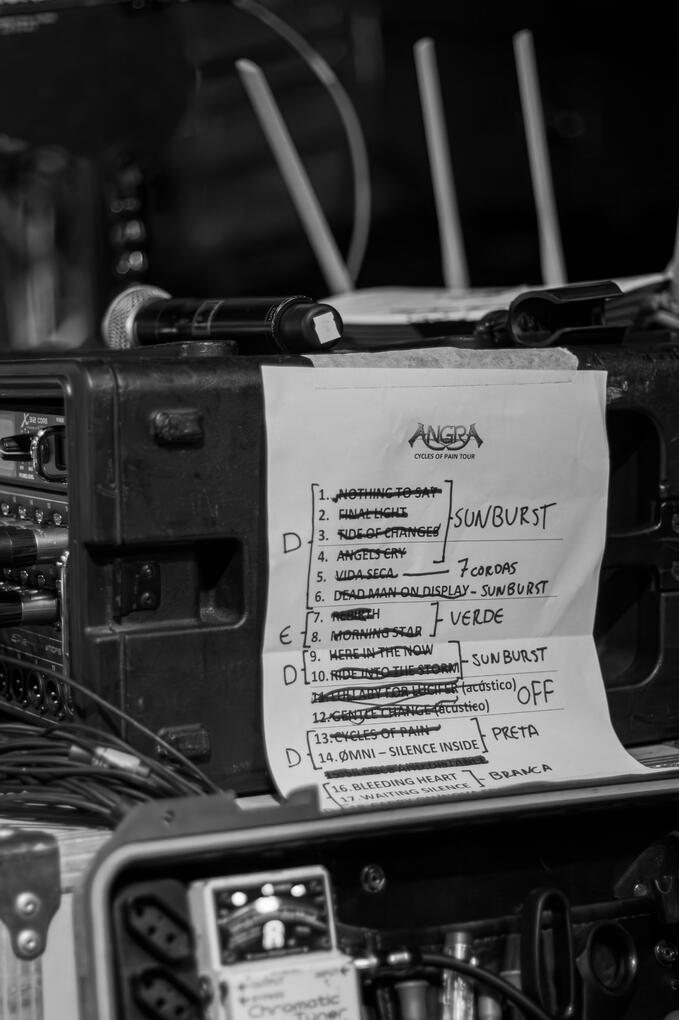 X32 CORE
ANGRA
CYCLES OF PAIN TOUR
1. NOTHING TO SAY
2. FINAL LIGHT
SUNBURST
3. TIDE OF CHANGES
D
4. ANGELS CRY
5. VIDA SECA — 7 CORDAS
6. DEAD MAN ON DISPLAY - SUNBURST
7. REBIRTH
VERDE
E
8. MORNING STAR
9. HERE IN THE NOW
SUNBURST
D
10. RIDE INTO THE STORM
11. LULLABY FOR LUCIFER (acústico)
OFF
12. GENTLE CHANGE (acústico)
13. CYCLES OF PAIN
PRETA
D
14. ØMNI – SILENCE INSIDE
16. BLEEDING HEART - BRANCA
17. WAITING SILENCE
OUTPUT INPUT
BYPASS
Chromatic
Tuner